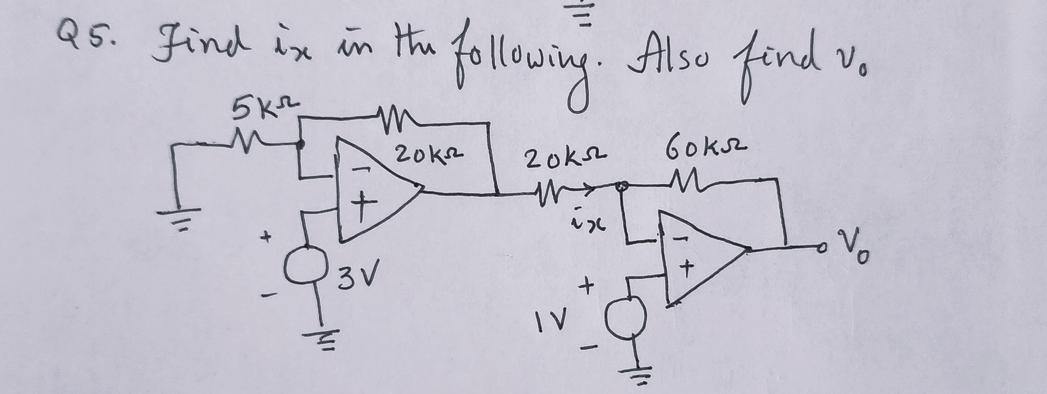 Q5. Find ix in the following. Also find v₀
5KΩ
20KΩ
20KΩ
60KΩ
-
+
ix
-
+
V₀
+
-
3V
+
-
1V